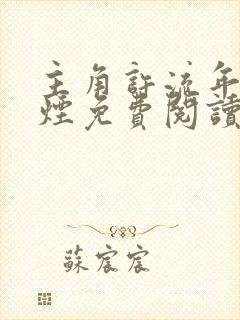 主角許流年
煙免費閱讀
蘇宸宸